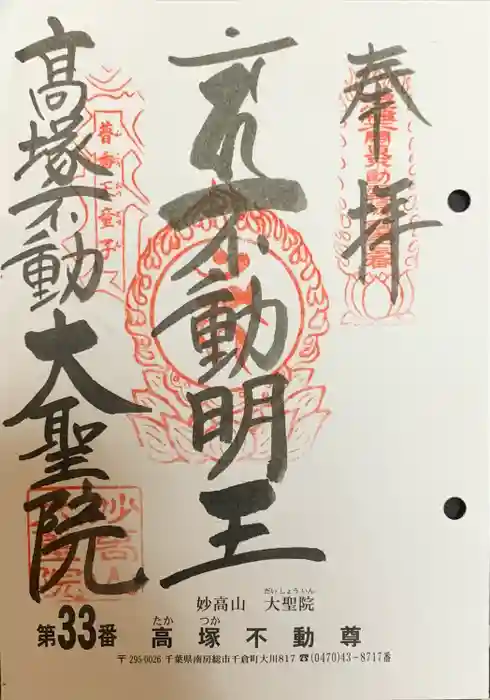 奉拝
不動明王
高塚不動 大聖院
普香王童子
妙高山 大聖院
だいしょういん
第33番 高塚不動尊
たか つか
〒295-0026 千葉県南房総市千倉町大川817 ☎(0470)43-8717番